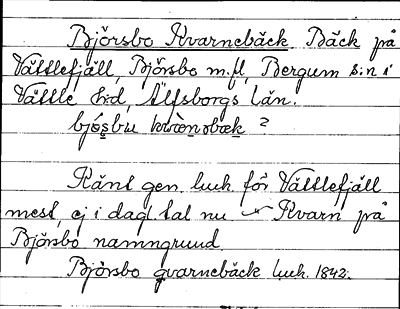 Björsbo Kvarnebäck. Bäck på
Vättlefjäll, Björsbo m.fl, Bergum s:n i
Vättle h:d, Älfsborgs län.
?
Känt gen. luck. för Vättlefjäll
mest, ej i dagl. tal nu Kvarn på
Björsbo namngrund.
Björsbo qvarnebäck luck. 1842.